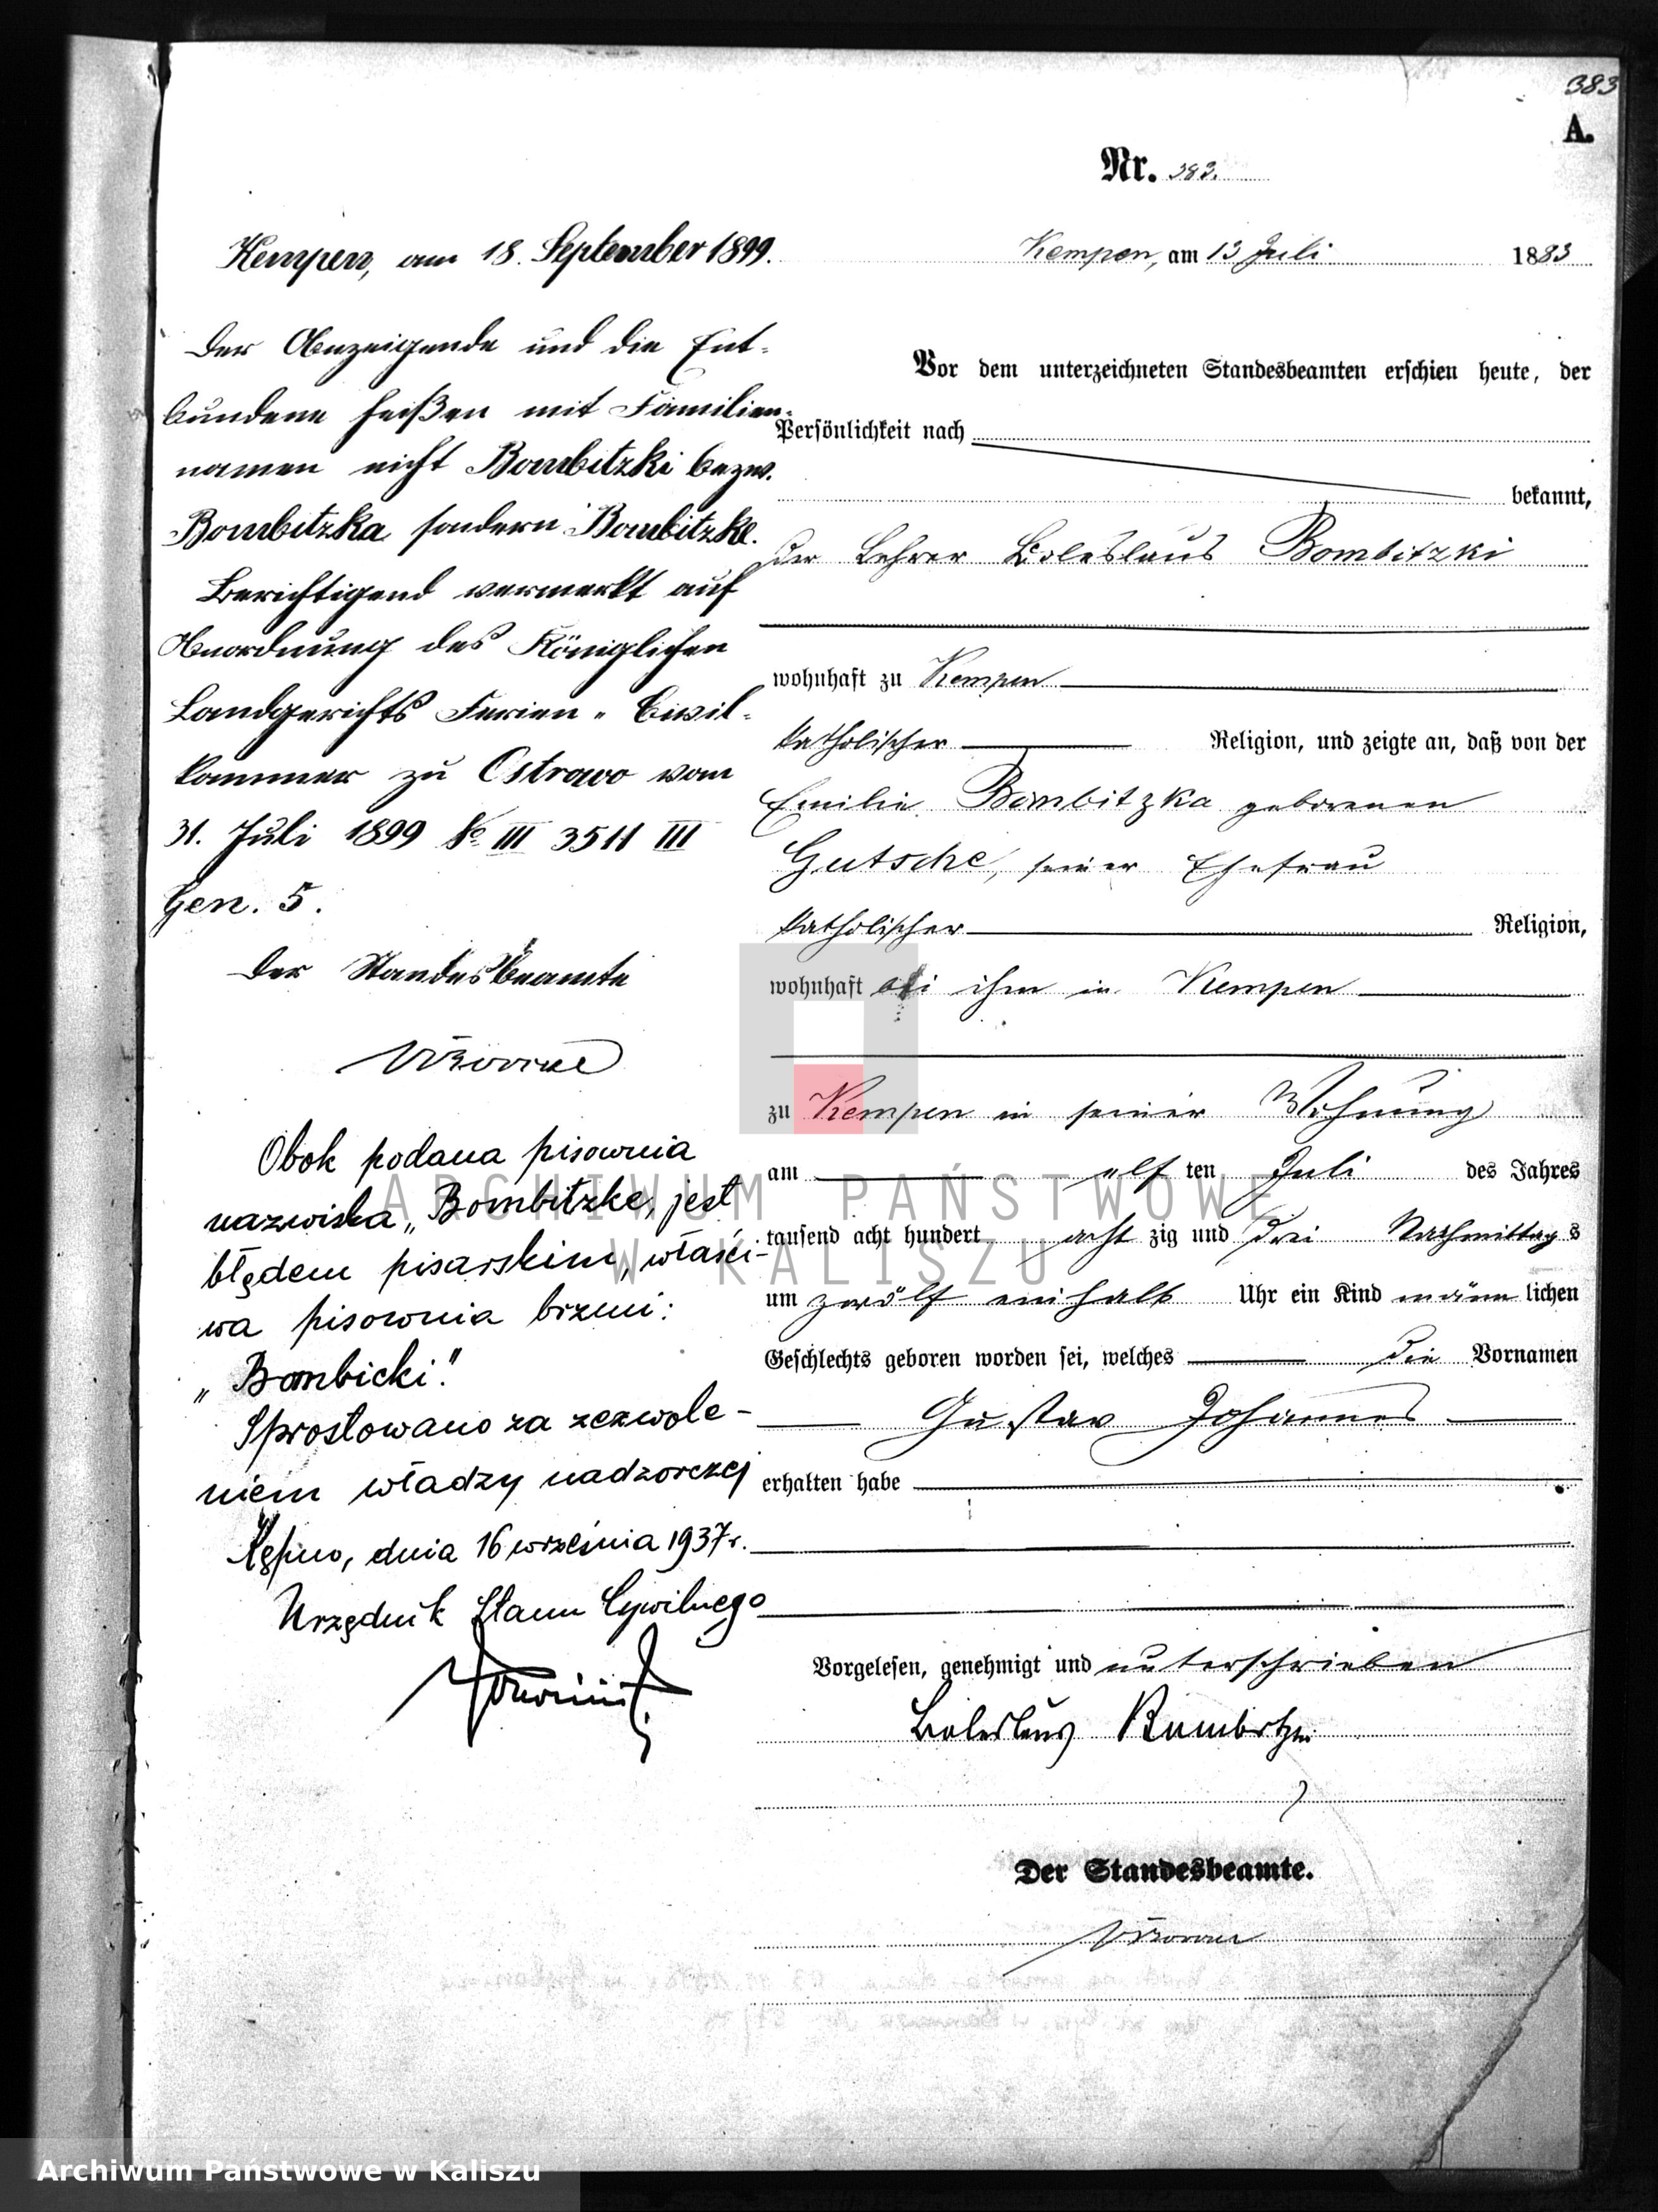 383
A.
Nr. 383.
Kempen, am 13 Juli 1883
Vor dem unterzeichneten Standesbeamten erschien heute, der
Persönlichkeit nach
bekannt,
der Lehrer Boleslaus Bombitzki
wohnhaft zu Kempen
katholischer Religion, und zeigte an, daß von der
Emilie Bombitzka geborenen
Gutsche, seiner Ehefrau
katholischer Religion,
wohnhaft bei ihm in Kempen
zu Kempen in seiner Wohnung
am elf ten Juli des Jahres
tausend acht hundert acht zig und drei Nachmittags
um zwölf einhalb Uhr ein Kind männlichen
Geschlechts geboren worden sei, welches die Vornamen
Gustav Johannes
erhalten habe
Vorgelesen, genehmigt und unterschrieben
Boleslaus
Der Standesbeamte.
Kempen, am 18. September 1899.
Der Anzeigende und die Ent-
bundene heißen mit Familien-
namen nicht Bombitzki bezw.
Bombitzka sondern Bombitzke.
Berichtigend vermerkt auf
Anordnung des Königlichen
Landgerichts Ferien-Civil-
kammer zu Ostrowo vom
31. Juli 1899 No III 3511 III
Gen. 5.
Der Standesbeamte
Obok podana pisownia
nazwiska „Bombitzke" jest
błędem pisarskim, właści-
wa pisownia brzmi:
„Bombicki."
Sprostowano za zezwole-
niem władzy nadzorczej
Kępno, dnia 16 września 1937 r.
Urzędnik Stanu Cywilnego
ARCHIWUM PAŃSTWOWE
W KALISZU
Archiwum Państwowe w Kaliszu